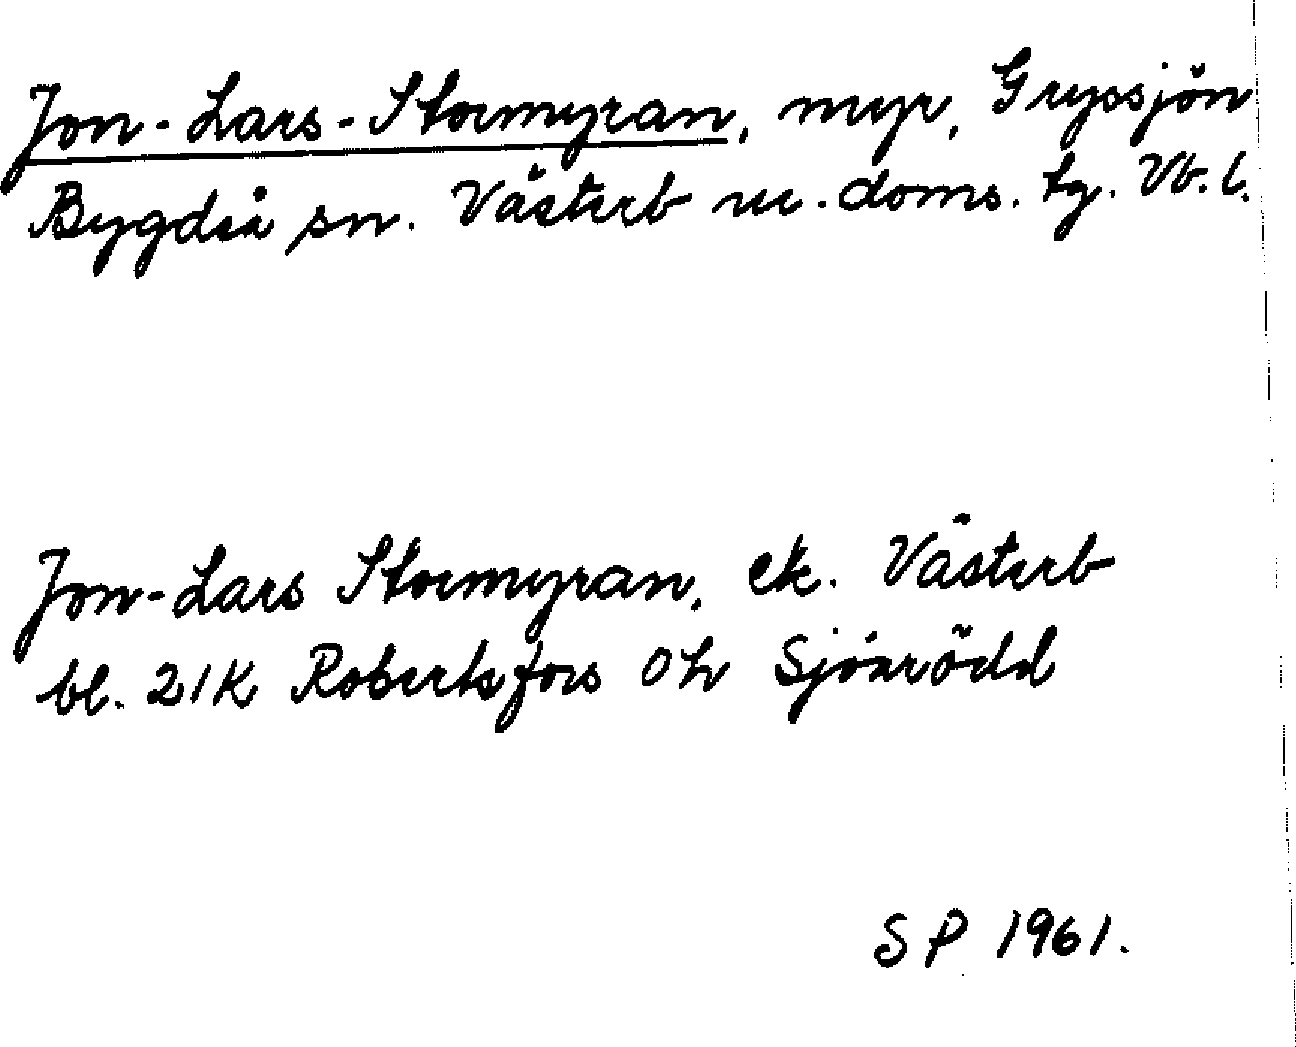 Jon-Lars-Stormyran, myr, Gryssjön
Bygdeå sn. Västerb ne. doms. tg. Vb. l.
Jon-Lars Stormyran, ek. Västerb
bl. 21K Robertsfors
SP 1961.